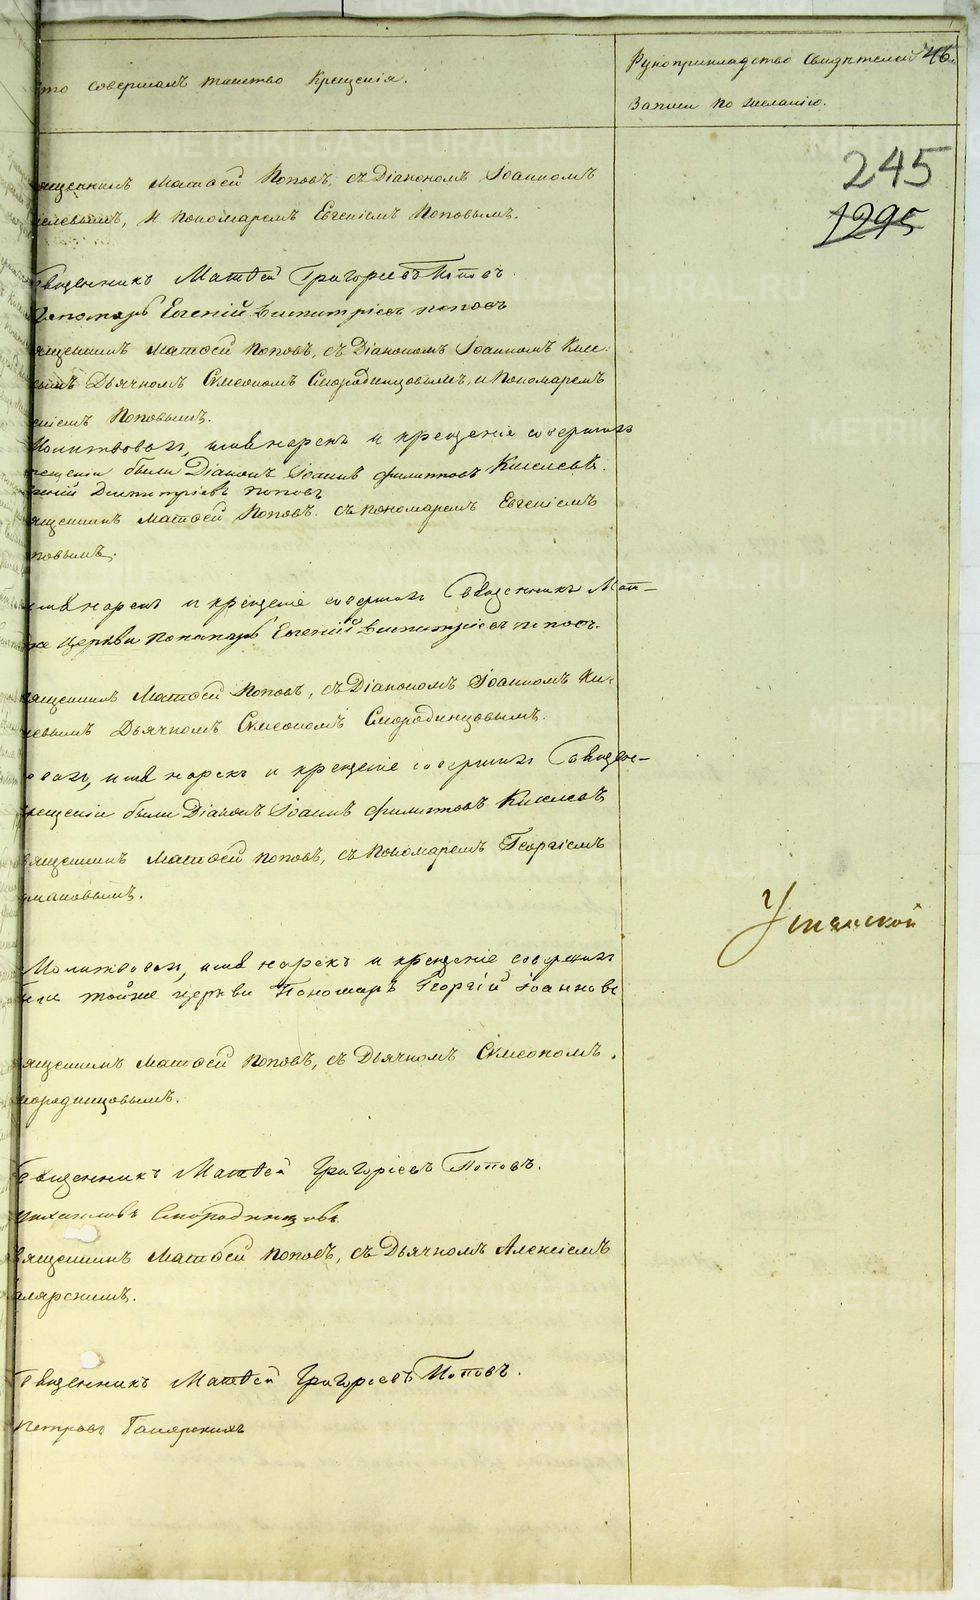 то совершалъ таинство Крещенія.
Рукоприкладство свидѣтелей
записи по желанію.
46
245
1295
ященникъ Матѳей Поповъ, съ Діакономъ Іоанномъ
иселевымъ, и Пономаремъ Евгеніемъ Поповымъ.
Священникъ Матѳей Григорьевъ Поповъ.
Пономарь Евгеній Димитріевъ Поповъ
ященникъ Матѳей Поповъ, съ Діакономъ Іоанномъ Кисе-
вымъ Дьячкомъ Симеономъ Смородинцовымъ, и Пономаремъ
еніемъ Поповымъ.
Молитвовалъ, имя нарекъ и крещеніе совершалъ
рещеніи были Діаконъ Іоаннъ Филиповъ Киселевъ.
геній Димитріевъ Поповъ
ященникъ Матѳей Поповъ. съ пономаремъ Евгеніемъ
повымъ.
имя нарекъ и крещеніе совершалъ Священникъ Мат-
же церкви Пономарь Евгеній Димитріевъ Поповъ.
ященникъ Матѳей Поповъ, съ Діакономъ Іоанномъ Ки-
евымъ Дьячкомъ Симеономъ Смородинцовымъ.
овалъ, имя нарекъ и крещеніе совершалъ Священ-
рещеніи были Діаконъ Іоаннъ Филиповъ Киселевъ
вященникъ Матѳей Поповъ, съ Пономаремъ Георгіемъ
мановымъ.
Устинской
Молитвовалъ, имя нарекъ и крещеніе совершалъ
тойже церкви Пономарь Георгій Іоанновъ
ященникъ Матѳей Поповъ, съ Дьячкомъ Симеономъ.
мородинцовымъ.
Священникъ Матѳей Григорьевъ Поповъ.
ихаиловъ Смородинцовъ
вященникъ Матѳей Поповъ, съ Дьячкомъ Алексіемъ
алярскимъ.
Священникъ Матѳей Григорьевъ Поповъ.
Петровъ
METRIKI.GASO-URAL.RU